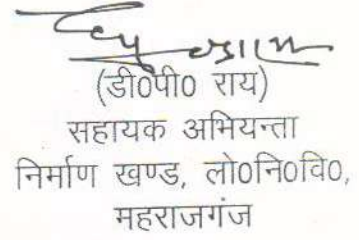 (डी0पी0 राय)
सहायक अभियन्ता
निर्माण खण्ड, लो0नि0वि0,
महराजगंज